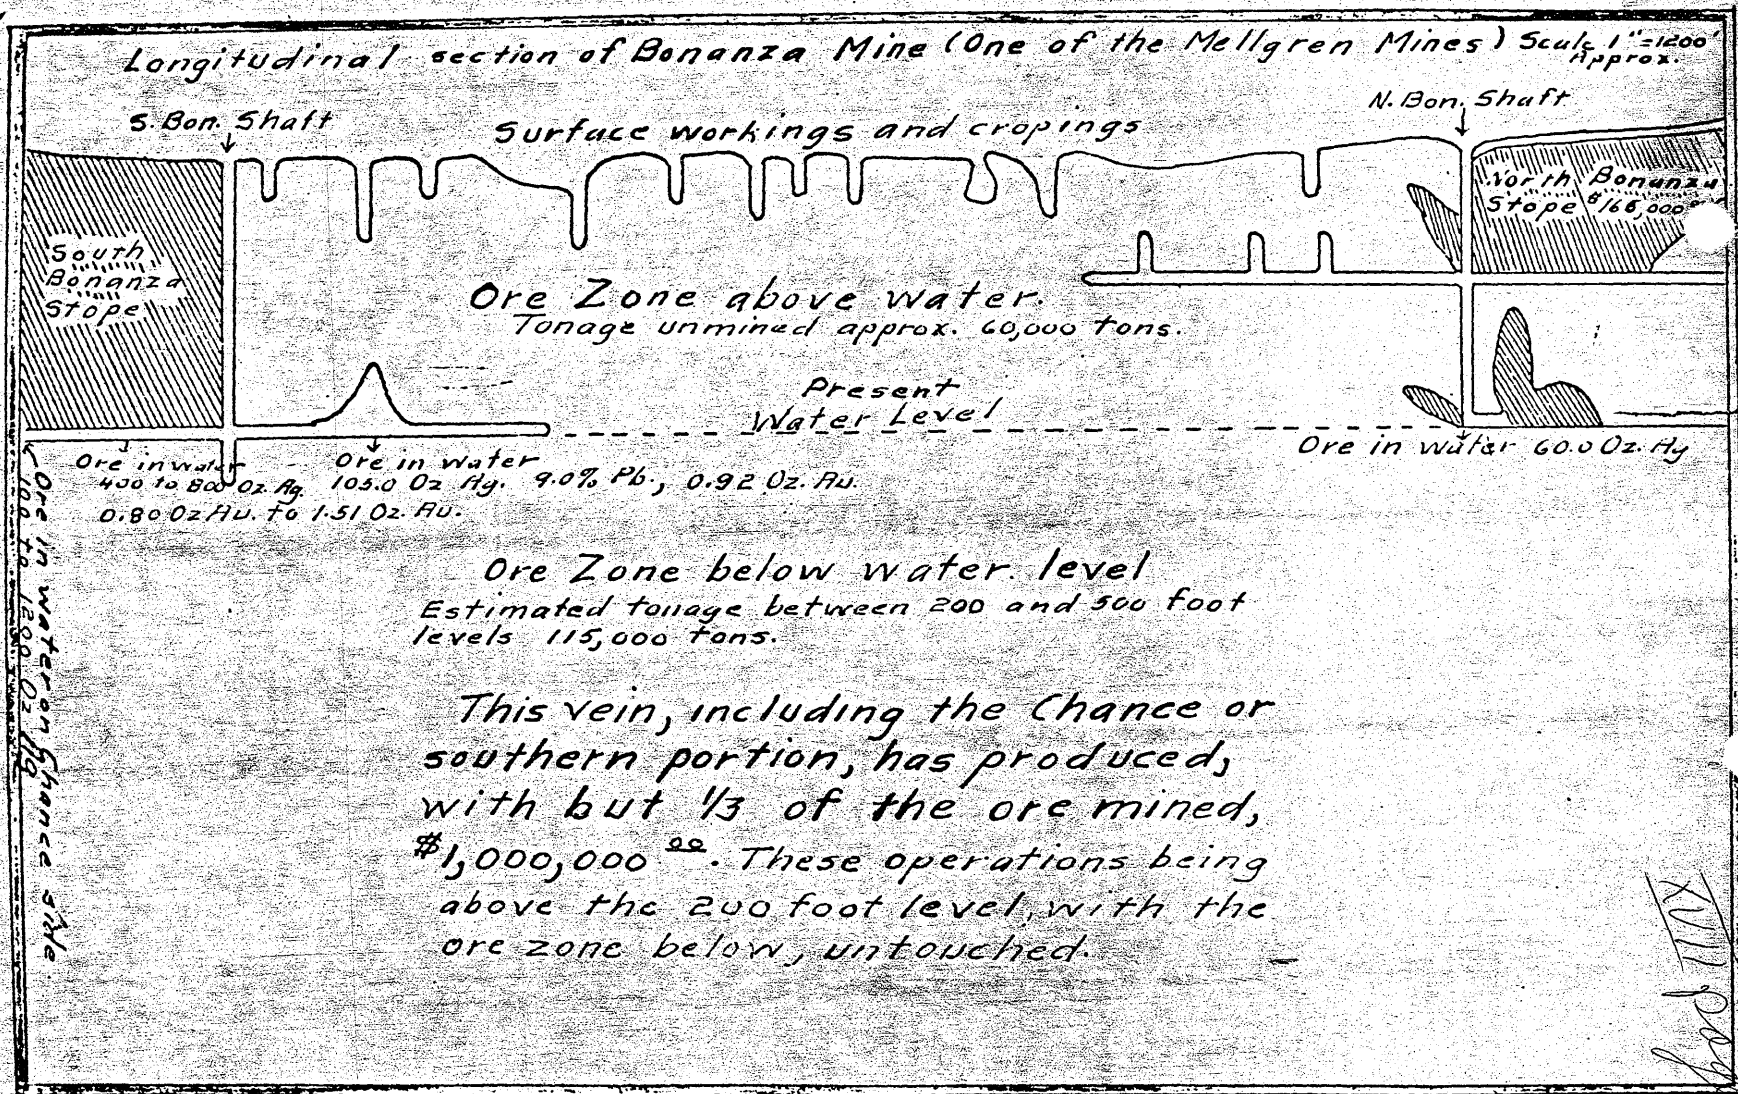 Longitudinal section of Bonanza Mine (One of the Mellgren Mines) Scale 1"=1200'
Approx.
S. Bon. Shaft
N. Bon. Shaft
Surface workings and cropings
North Bonanza
Stope $165,000
South
Bonanza
Stope
Ore Zone above water.
Tonage unmined approx. 60,000 tons.
Present
Water Level
Ore in water
400 to 800 Oz. Ag.
0.80 Oz Au. to 1.51 Oz. Au.
Ore in water
105.0 Oz Ag. 9.0% Pb., 0.92 Oz. Au.
Ore in water 60.0 Oz. Ag
Ore in water on Chance side.
100 to 1200 Oz Ag
Ore Zone below water. level
Estimated tonage between 200 and 500 foot
levels 115,000 tons.
This vein, including the Chance or
southern portion, has produced,
with but 1/3 of the ore mined,
$1,000,000 00. These operations being
above the 200 foot level, with the
ore zone below, untouched.